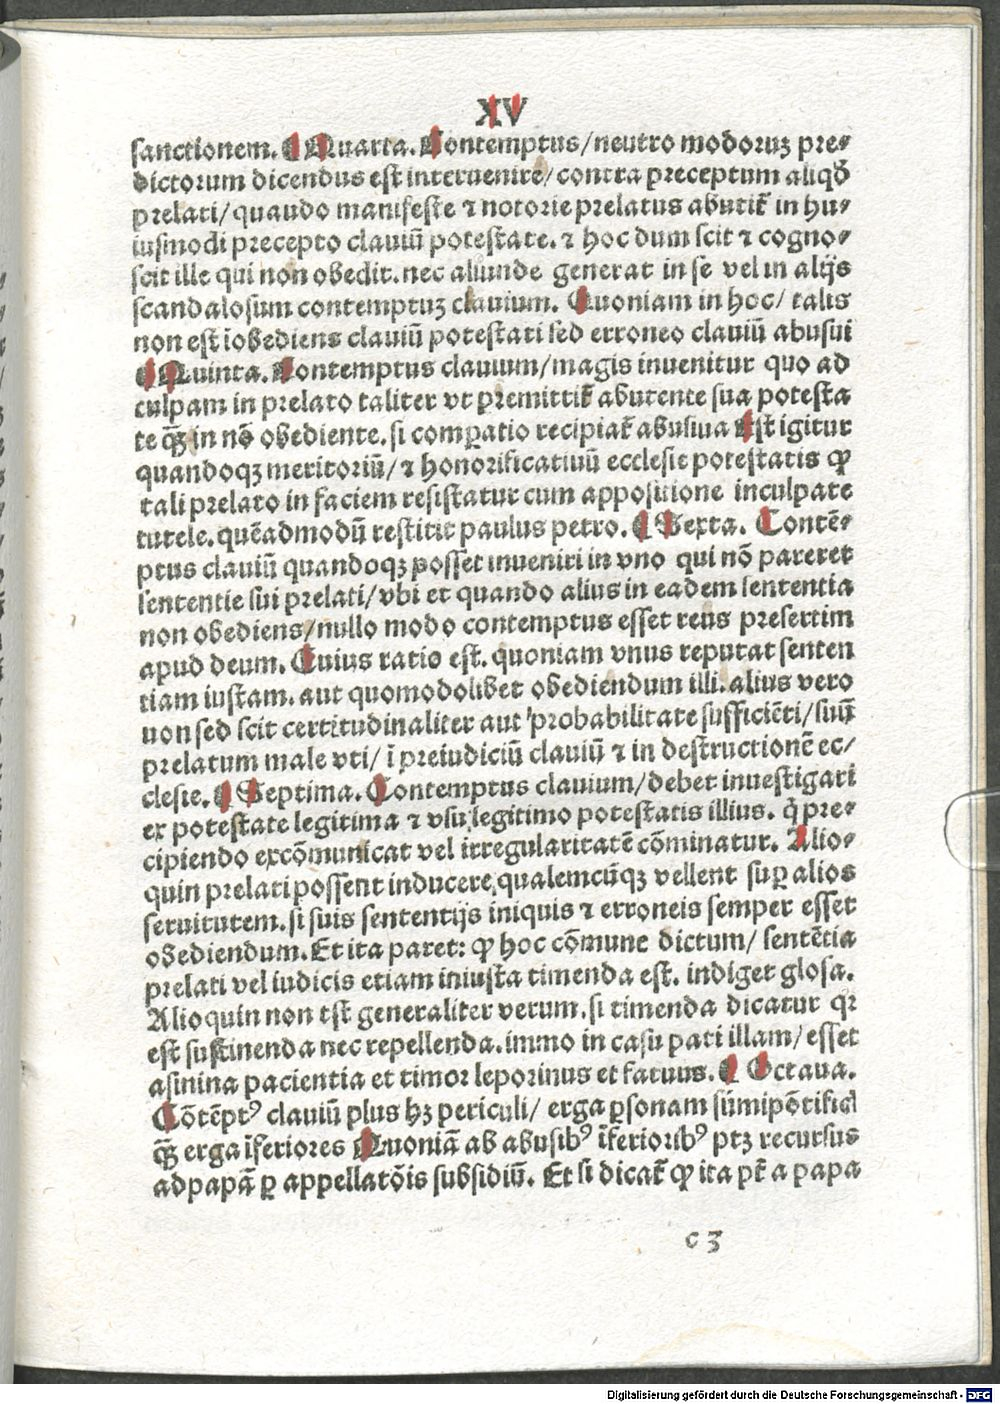 XV
sanctionem. ¶ Quarta. Contemptus/neutro modoruꝫ pre-
dictorum dicendus est interuenire/contra preceptum aliqđ
prelati/quando manifeste ⁊ notorie prelatus abutit᷑ in hu-
iusmodi precepto clauiū potestate. ⁊ hoc dum scit ⁊ cogno-
scit ille qui non obedit. nec aliunde generat in se vel in alijs
scandalosum contemptuꝫ clauium. Quoniam in hoc/talis
non est īobediens clauiū potestati sed erroneo clauiū abusui
¶ Quinta. Contemptus clauium/magis inuenitur quo ad
culpam in prelato taliter vt premittit᷑ abutente sua potesta
te q̄ꝫ in nō obediente. si comꝑatio recipiat᷑ abusiua Est igitur
quandoqꝫ meritoriū/⁊ honorificatiuū ecclesie potestatis ꝙ
tali prelato in faciem resistatur cum appositione inculpate
tutele. quēadmodū restitit paulus petro. ¶ Sexta. Contē-
ptus clauiū quandoqꝫ posset inueniri in vno qui nō pareret
sententie sui prelati/vbi et quando alius in eadem sententia
non obediens/nullo modo contemptus esset reus presertim
apud deum. Cuius ratio est. quoniam vnus reputat senten
tiam iustam. aut quomodolibet obediendum illi. alius vero
non sed scit certitudinaliter aut probabilitate sufficiēti/suū
prelatum male vti/ī preiudiciū clauiū ⁊ in destructionē ec/
clesie. ¶ Septima. Contemptus clauium/debet inuestigari
ex potestate legitima ⁊ vsu legitimo potestatis illius. q̇ pre-
cipiendo excōmunicat vel irregularitatē cōminatur. Alio-
quin prelati possent inducere qualemcūqꝫ vellent suꝑ alios
seruitutem. si suis sententijs iniquis ⁊ erroneis semper esset
obediendum. Et ita patet: ꝙ hoc cōmune dictum/sentētia
prelati vel iudicis etiam iniusta timenda est. indiget glosa.
Alioquin non est generaliter verum. si timenda dicatur qꝛ
est sustinenda nec repellenda. immo in casu pati illam/esset
asinina paciencia et timor leporinus et fatuus. ¶ Octaua.
Cōtēptꝰ clauiū plus hꝫ periculi/erga ꝑsonam sūmipōtificꝭ
q̄ꝫ erga īferiores Quoniā ab abusibꝰ īferioribꝰ ptꝫ recursus
ad papā ꝑ appellatōis subsidiū. Et si dicat᷑ ꝙ ita pt᷑ a papa
c 3
Digitalisierung gefördert durch die Deutsche Forschungsgemeinschaft - DFG